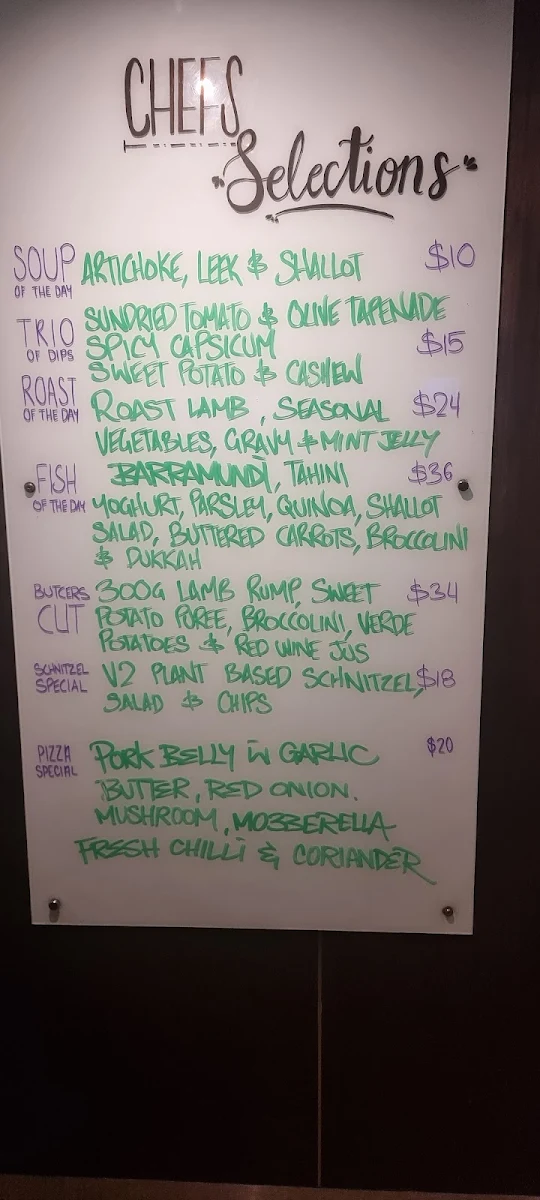 CHEFS
Selections
SOUP OF THE DAY ARTICHOKE, LEEK & SHALLOT $10
TRIO OF DIPS SUNDRIED TOMATO & OLIVE TAPENADE
SPICY CAPSICUM $15
SWEET POTATO & CASHEW
ROAST OF THE DAY ROAST LAMB, SEASONAL $24
VEGETABLES, GRAVY & MINT JELLY
FISH OF THE DAY BARRAMUNDI, TAHINI $36
YOGHURT, PARSLEY, QUINOA, SHALLOT
SALAD, BUTTERED CARROTS, BROCCOLINI
& DUKKAH
BUTCERS CUT 300G LAMB RUMP, SWEET $34
POTATO PUREE, BROCCOLINI, VERDE
POTATOES & RED WINE JUS
SCHNITZEL SPECIAL V2 PLANT BASED SCHNITZEL, $18
SALAD & CHIPS
PIZZA SPECIAL PORK BELLY IN GARLIC $20
BUTTER, RED ONION.
MUSHROOM, MOZBERELLA
FRESH CHILLI & CORIANDER